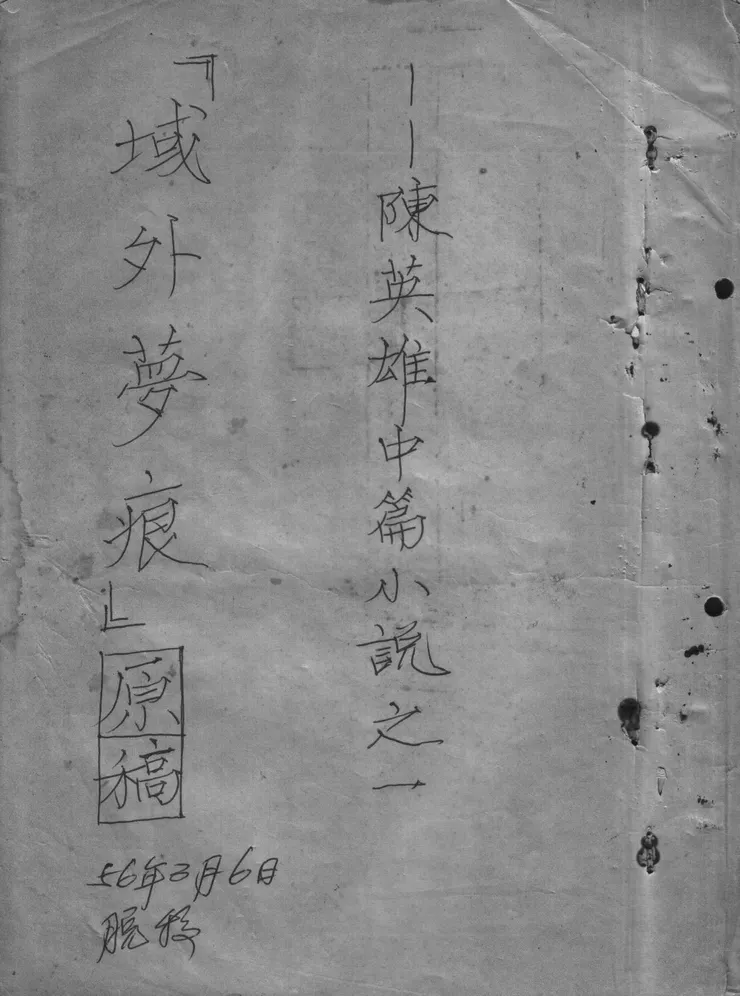 ——陳英雄中篇小説之一
『域外夢痕』原稿
56年3月6日
脱稿